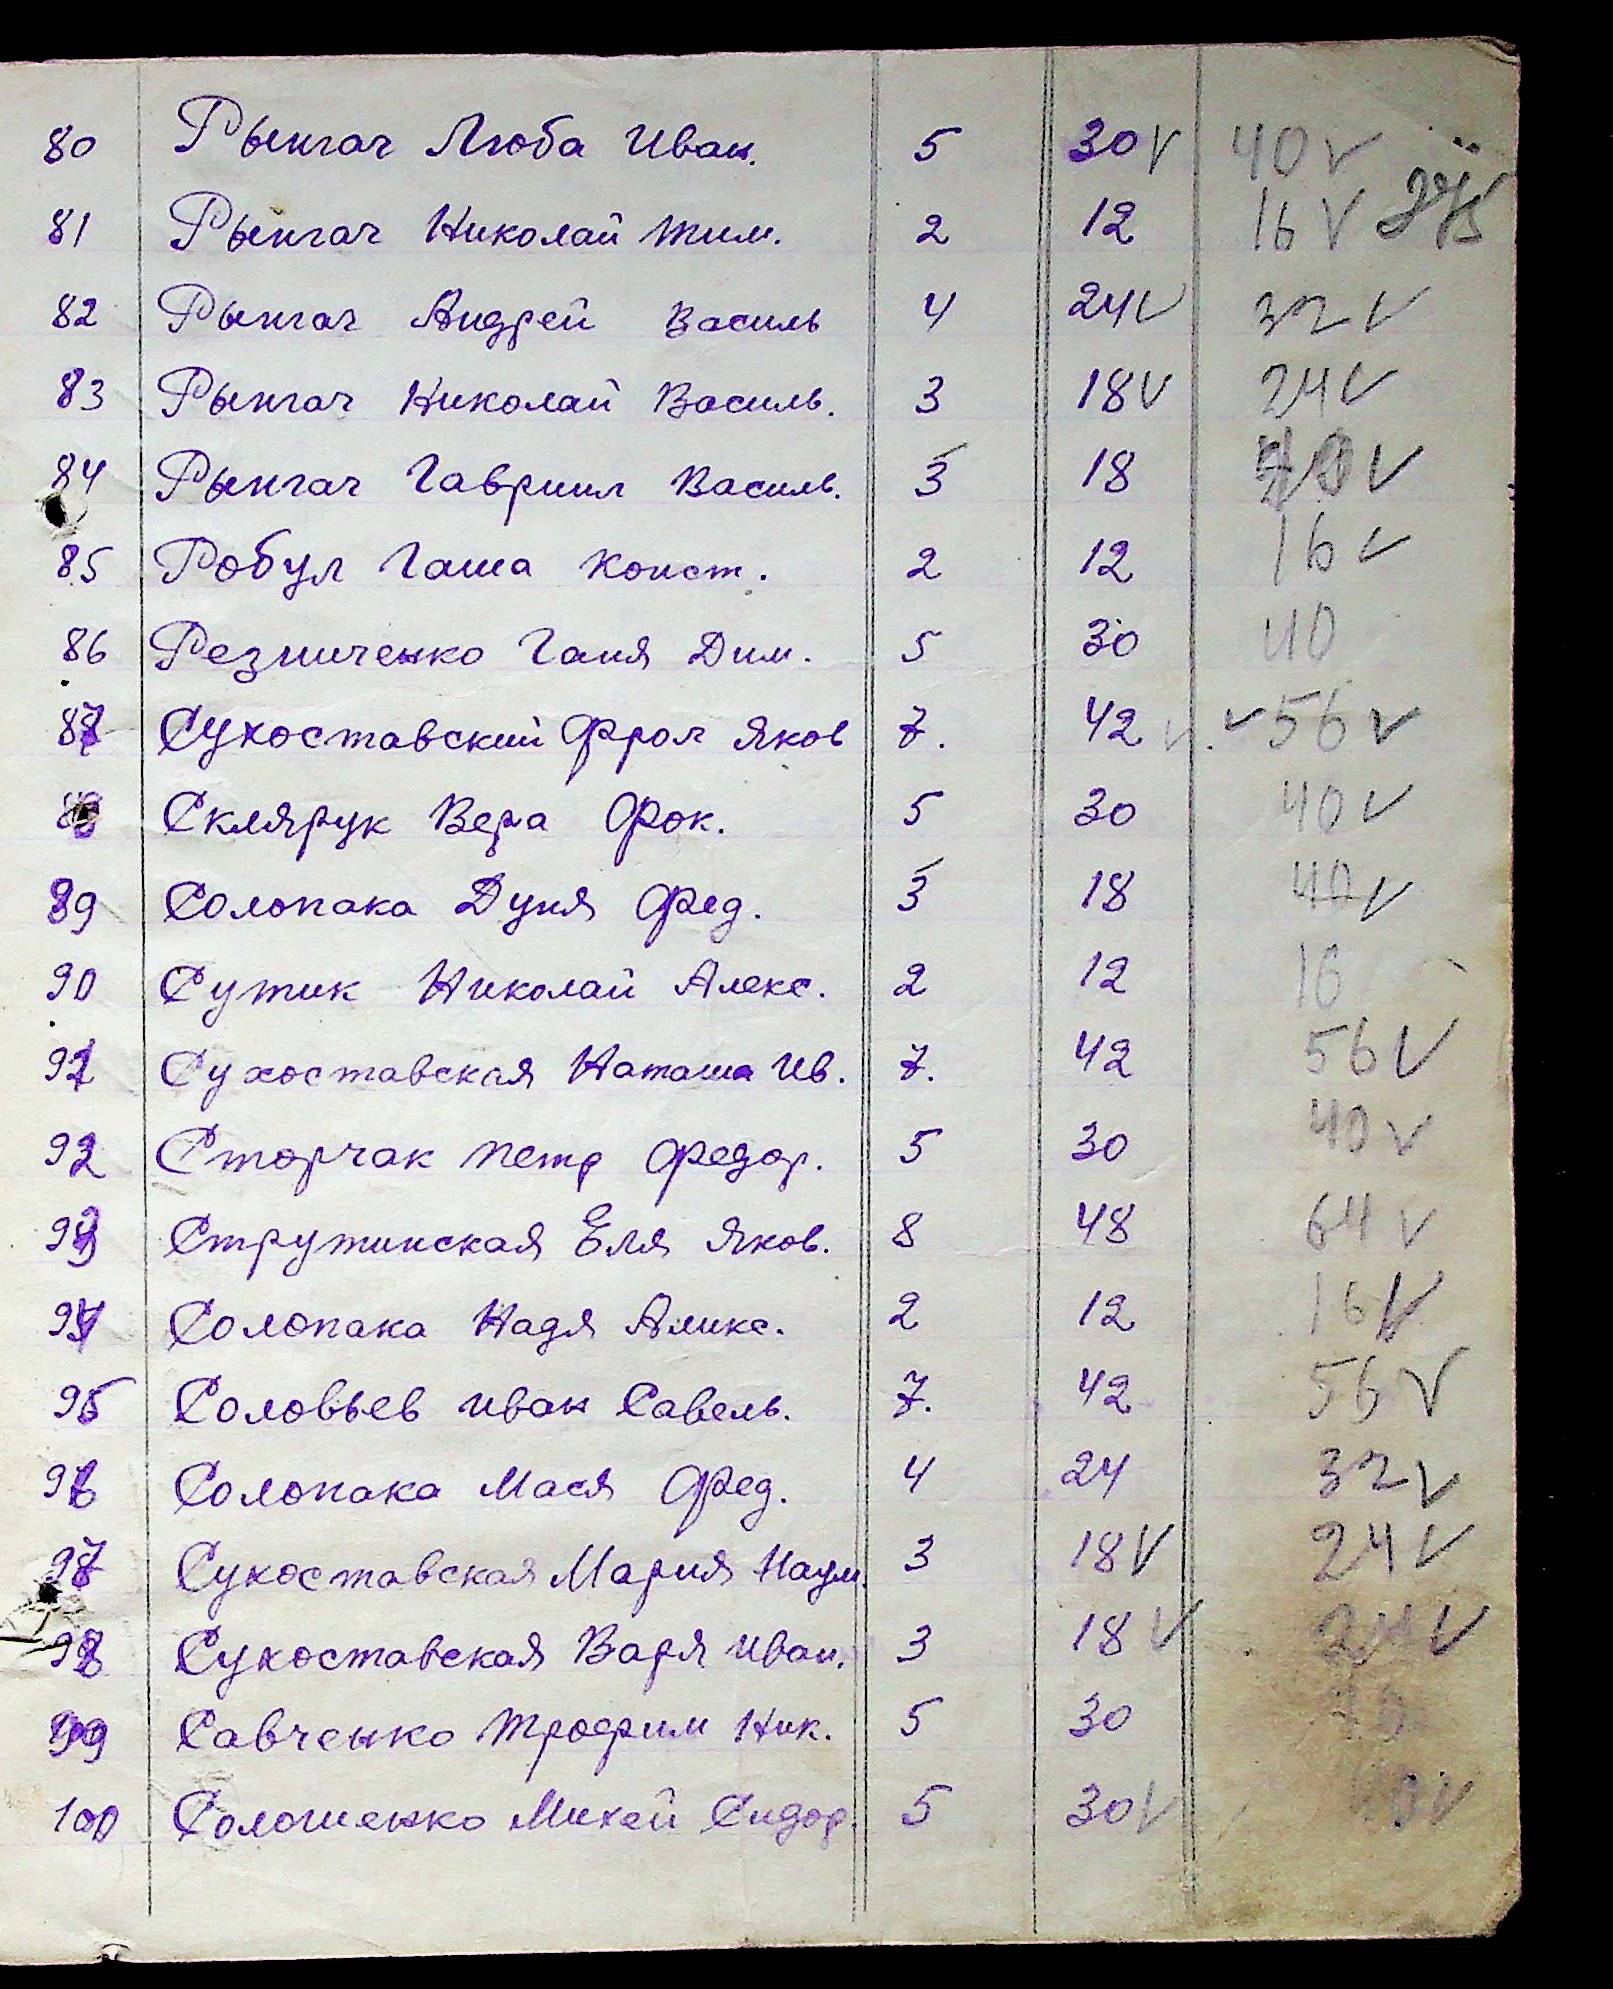 80 Рынгач Люба Иван. 5 30 V 40 V
81 Рынгач Николай Тим. 2 12 16 V
82 Рынгач Андрей Василь 4 24 V 32 V
83 Рынгач Николай Василь. 3 18 V 24 V
84 Рынгач Гавриил Василь. 3 18 V
85 Робул Гаша Конст. 2 12 16 V
86 Резниченко Ганя Дим. 5 30 40
87 Сухоставский Фрол Яков 7. 42 V V 56 V
88 Склярук Вера Фок. 5 30 40 V
89 Солопака Дуня Фед. 3 18 40 V
90 Сутик Николай Алекс. 2 12 16
91 Сухоставская Наташа Ив. 7. 42 56 V
92 Сторчак Петр Федор. 5 30 40 V
93 Струтинская Еля Яков. 8 48 64 V
94 Солопака Надя Аликс. 2 12 16 V
95 Соловьев Иван Савель. 7. 42 56 V
96 Солопака Мася Фед. 4 24 32 V
97 Сухоставская Мария Наум. 3 18 V 24 V
98 Сухоставская Варя Иван. 3 18 V 24 V
99 Савченко Трофим Ник. 5 30
100 Солошенко Михей Сидор. 5 30 V 40 V